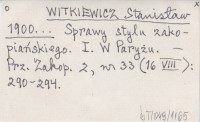 WITKIEWICZ Stanisław
1900... Sprawy stylu zako-
piańskiego. I. W Paryżu. –
Prz. Zakop. 2, nr 33 (16 VIII):
290-294.
b77049/1165